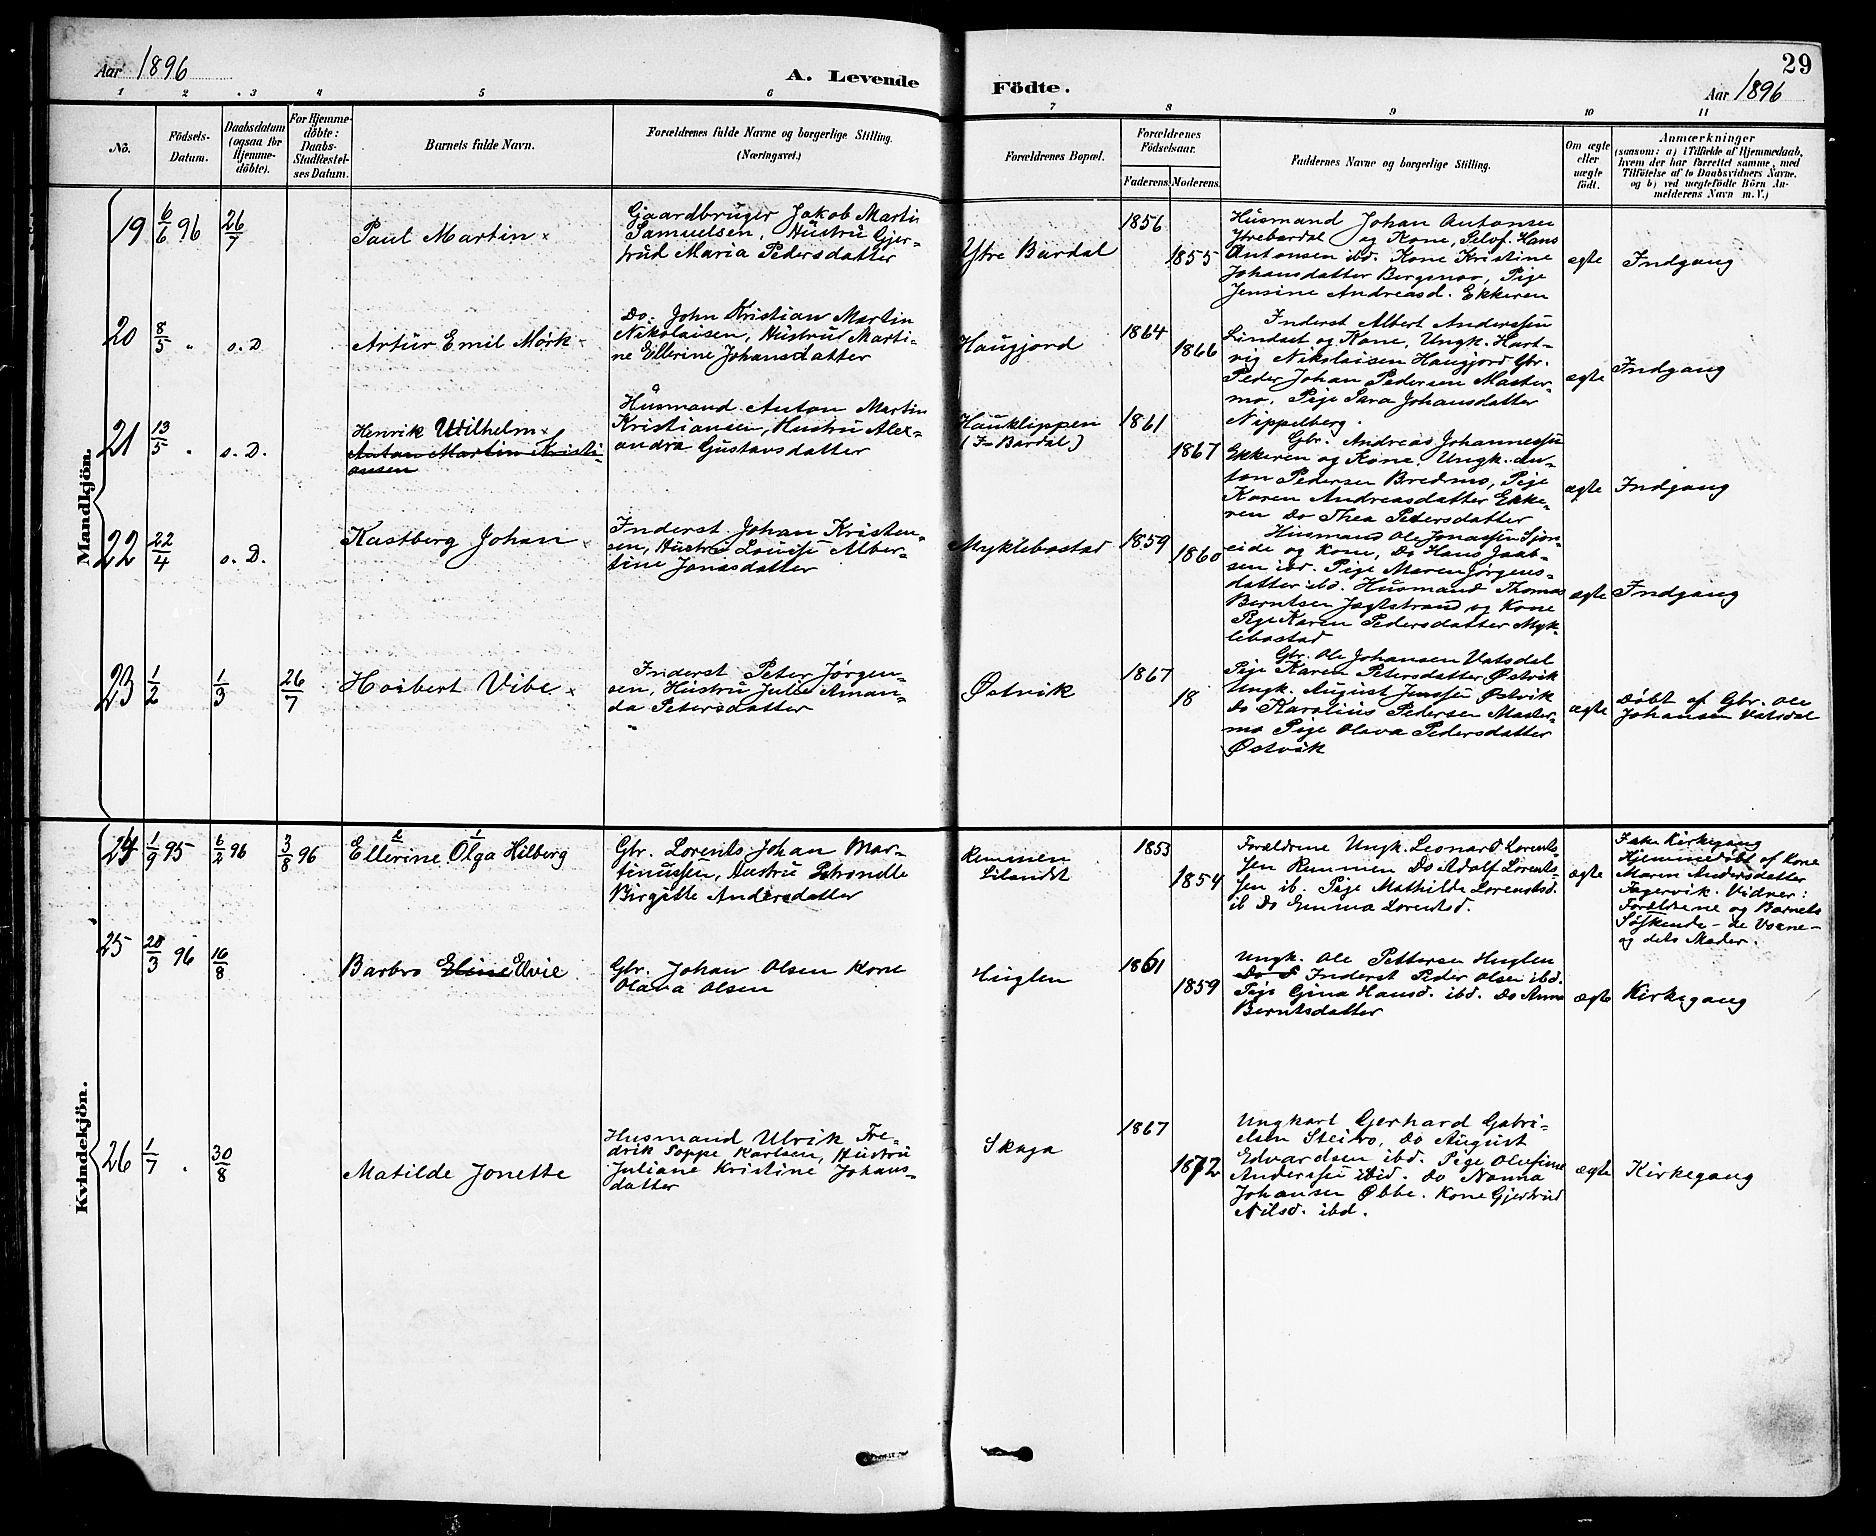 29
Aar 1896
A. Levende
Födte.
Aar 1896
1 2 3 4 5 6 7 8 9 10 11
No.
Födsels-
Datum.
Daabsdatum
(ogsaa for
Hjemme-
döbte).
For Hjemme-
döbte:
Daabs-
Stadfæstel-
ses Datum.
Barnets fulde Navn.
Forældrenes fulde Navne og borgerlige Stilling.
(Næringsvei.)
Forældrenes Bopæl.
Forældrenes
Födselsaar.
Faderens. Moderens.
Faddernes Navne og borgerlige Stilling.
Om ægte
eller
uægte
födt.
Anmærkninger
(saasom: a) i Tilfælde af Hjemmedaab,
hvem der har forrettet samme, med
Tilföielse af to Daabsvidners Navne,
og b) ved uægtefödte Börn An-
melderens Navn m. V.)
Mandkjön.
19 6/6 96 26/7
Paul Martin
Gaardbruger Jakob Martin
Samuelsen, Hustru Gjer-
trud Maria Pedersdatter
Ytre Bardal
1856
1855
Husmand Johan Antonsen
Ytrebardal og Kone, Selvf. Hans
Antonsen ibd. Kone Kristine
Johansdatter Bergsnov, Pige
Jensine Andreasd. Ekkeren
ægte
Indgang
20 8/5 " s. D
Artur Emil Mørk
Do. John Kristian Martin
Nikolaisen, Hustru Marti-
ne Ellerine Johansdatter
Haugjord
1864
1866
Inderst Albert Anderssen
Lindset og Kone, Ungk. Hart-
vig Nikolaisen Haugjord Gbr.
Peder Johan Pedersen Master-
mo, Pige Sara Johansdatter
Nippelberg.
ægte
Indgang
21 13/5 " s. D.
Henrik Wilhelm
Anton Martin Kristi-
ansen
Husmand Anton Martin
Kristiansen, Hustru Alex-
andra Gustavsdatter
Hauklippen
(I-Bardal)
1861
1867
Gbr. Andreas Johannessen
Ekkeren og Kone, Ungk. An-
ton Pedersen Bredmo, Pige
Karen Andreasdatter Ekke-
ren Do Thea Pedersdatter
ægte
Indgang
22 22/4 s. D.
Kastberg Johan
Inderst Johan Kristen-
sen, Hustru Louise Alber-
tine Jonasdatter
Myklebostad
1859
1860
Husmand Ole Jonassen Sjon-
eide og Kone, Do Hans Jaab-
sen ibd. Pige Maren Jørgens-
datter ibd. Husmand Thomas
Berntsen Jægtstrand og Kone
Pige Karen Pedersdatter Myk-
lebostad
ægte
Indgang
23 1/2 1/3 26/7
Hoibert Vibe
Inderst Peter Jørgen-
sen, Hustru Julie Aman-
da Petersdatter
Østvik
1867
18
Gbr. Ole Johansen Vatsdal
Pige Karen Petersdatter Østvik
Ungk. August Jenssen Østvik
Do Karolius Pedersen Master-
mo Pige Olava Pedersdatter
Østvik
ægte
Døbt af Gbr. Ole
Johansen Vatsdal
Kvindekjön.
24 1/9 95 6/2 96 3/8 96
2 1
Ellerine Olga Hilberg
Gbr. Lorents Johan Mar-
tinussen, Hustru
Birgitte Andersdatter
Remmen
1853
1854
Forældrene Ungk. Leonard Lorents-
sen Remmen Do Adolf Lorents-
sen ib. Pige Mathilde Lorentsd.
ib Do Emma Lorentsd.
ægte
Kirkegang
Hjemmedøbt af Kone
Maren Andersdatter
Fagervik. Vidner:
Forældrene og Barnets
Søskende - de Voxne -
og dets Moder.
25 20/3 96 16/8
Barbro Eline Elvie
Gbr. Johan Olsen Kone
Olava Olsen
Huglen
1861
1859
Ungk. Ole Pettersen Huglen
Do P Inderst Peder Olsen ibd.
Pige Gina Hansd. ibd. Do Anna
Berntsdatter
ægte
Kirkegang
26 1/7 " 30/8
Matilde Jonette
Husmand Ulrik Fre-
drik Soppe Karlsen, Hustru
Juliane Kristine Johans-
datter
Skaga
1867
1872
Ungkarl Gerhard Gabri-
elsen Steiro, Do August
Edvardsen ibd. Pige Olufine
Anderssen ibid. Do Nanna
Johansen Øbbe. Kone Gjertrud
Nilsd. ibd.
ægte
Kirkegang